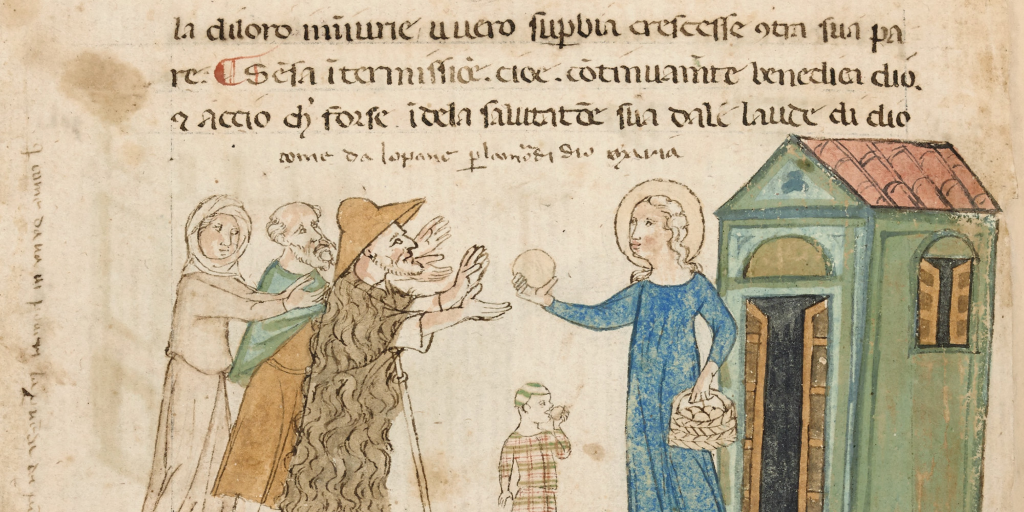 la diloro iniurie uuero sup̄bia crescesse ꝯtra sua pa
re. ¶ Sēsa ītermissiōe. cioe. cōtinuam̄te benedicea dio.
⁊ accio ch' forse īdela salutatōe sua dale laude di dio
come da lopane ꝑ lamore di dio maria